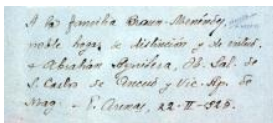 A la familia Braun-Menéndez,
noble hogar de distinción y de virtud.
+ Abrahán Aguilera, Ob. Sal. de
S. Carlos de Ancud y Vic. Ap. de
Mag. - P. Arenas, 22-II-926.